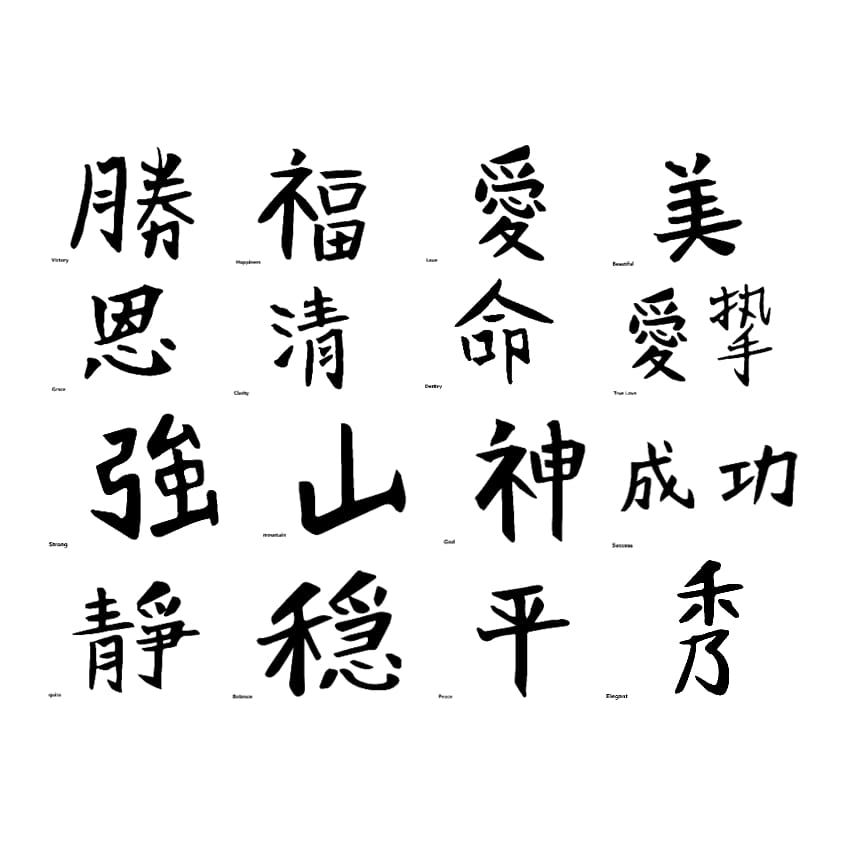 勝 福 愛 美
Victory Happiness Love Beautiful
恩 清 命 愛 挚
Grace Clarity Destiny True Love
強 山 神 成 功
Strong mountain God Success
靜 穩 平 秀
quite Balance Peace Elegant